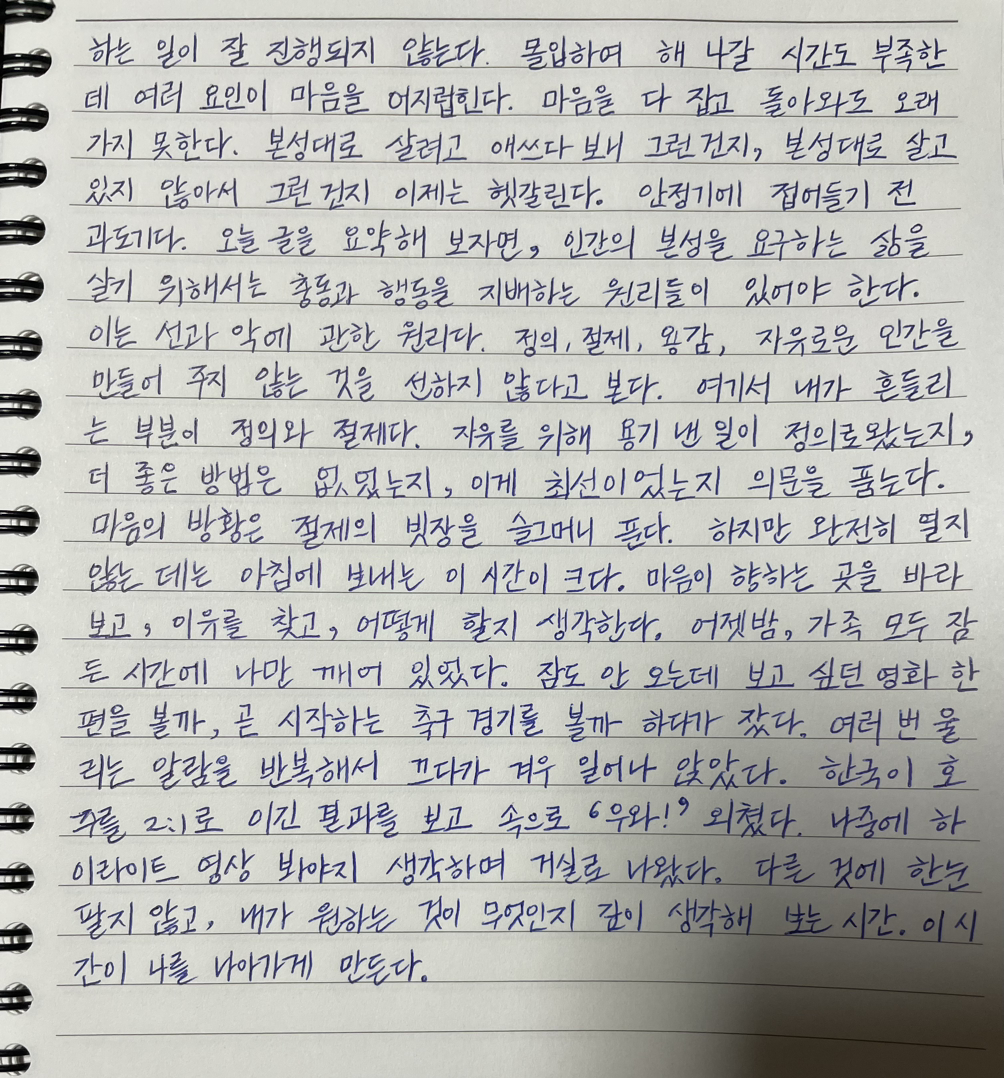 하는 일이 잘 진행되지 않는다. 몰입하여 해 나갈 시간도 부족한
데 여러 요인이 마음을 어지럽힌다. 마음을 다 잡고 돌아와도 오래
가지 못한다. 본성대로 살려고 애쓰다 보니 그런 건지, 본성대로 살고
있지 않아서 그런 건지 이제는 헷갈린다. 안정기에 접어들기 전
과도기다. 오늘 글을 요약해 보자면, 인간의 본성을 요구하는 삶을
살기 위해서는 충동과 행동을 지배하는 원리들이 있어야 한다.
이는 선과 악에 관한 원리다. 정의, 절제, 용감, 자유로운 인간을
만들어 주지 않는 것을 선하지 않다고 본다. 여기서 내가 흔들리
는 부분이 정의와 절제다. 자유를 위해 용기 낸 일이 정의로왔는지,
더 좋은 방법은 없었는지, 이게 최선이었는지 의문을 품는다.
마음의 방황은 절제의 빗장을 슬그머니 푼다. 하지만 완전히 열지
않는 데는 아침에 보내는 이 시간이 크다. 마음이 향하는 곳을 바라
보고, 이유를 찾고, 어떻게 할지 생각한다. 어젯밤, 가족 모두 잠
든 시간에 나만 깨어 있었다. 잠도 안 오는데 보고 싶던 영화 한
편을 볼까, 곧 시작하는 축구 경기를 볼까 하다가 잤다. 여러 번 울
리는 알람을 반복해서 끄다가 겨우 일어나 앉았다. 한국이 호
주를 2:1로 이긴 결과를 보고 속으로 '우와!' 외쳤다. 나중에 하
이라이트 영상 봐야지 생각하며 거실로 나왔다. 다른 것에 한눈
팔지 않고, 내가 원하는 것이 무엇인지 깊이 생각해 보는 시간. 이 시
간이 나를 나아가게 만든다.